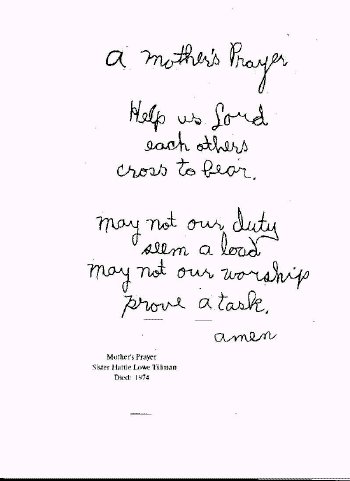 a Mother's Prayer
Help us Lord
each others
cross to bear.
may not our duty
seem a load
may not our worship
prove a task.
amen
Mother's Prayer
Sister Hattie Lowe Tillman
Died: 1974